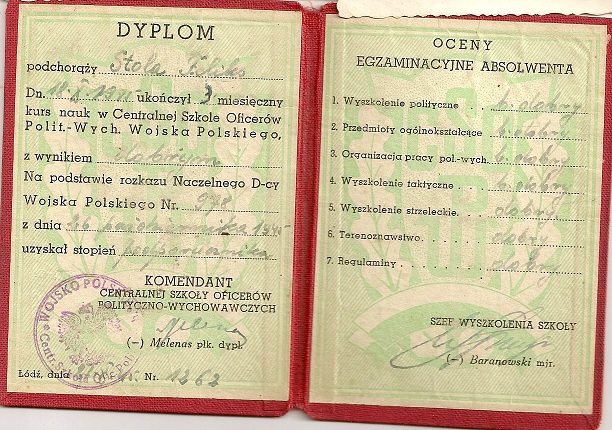 DYPLOM
podchorąży Stola Feliks
Dn. 18 X ukończył 3 miesięczny
kurs nauk w Centralnej Szkole Oficerów
Polit.-Wych. Wojska Polskiego,
z wynikiem dobrym
Na podstawie rozkazu Naczelnego D-cy
Wojska Polskiego Nr. 978
z dnia 26 października 1945
uzyskał stopień podporucznika
KOMENDANT
CENTRALNEJ SZKOŁY OFICERÓW
POLITYCZNO-WYCHOWAWCZYCH
(—) Melenas płk. dypl.
WOJSKO POLSKIE
Łódź, dnia Nr. 1262
OCENY
EGZAMINACYJNE ABSOLWENTA
1. Wyszkolenie polityczne b. dobry
2. Przedmioty ogólnokształcące b. dobry
3. Organizacja pracy pol.-wych. b. dobry
4. Wyszkolenie taktyczne b. dobry
5. Wyszkolenie strzeleckie dobry
6. Terenoznawstwo dobry
7. Regulaminy dobry
SZEF WYSZKOLENIA SZKOŁY
(—) Baranowski mjr.